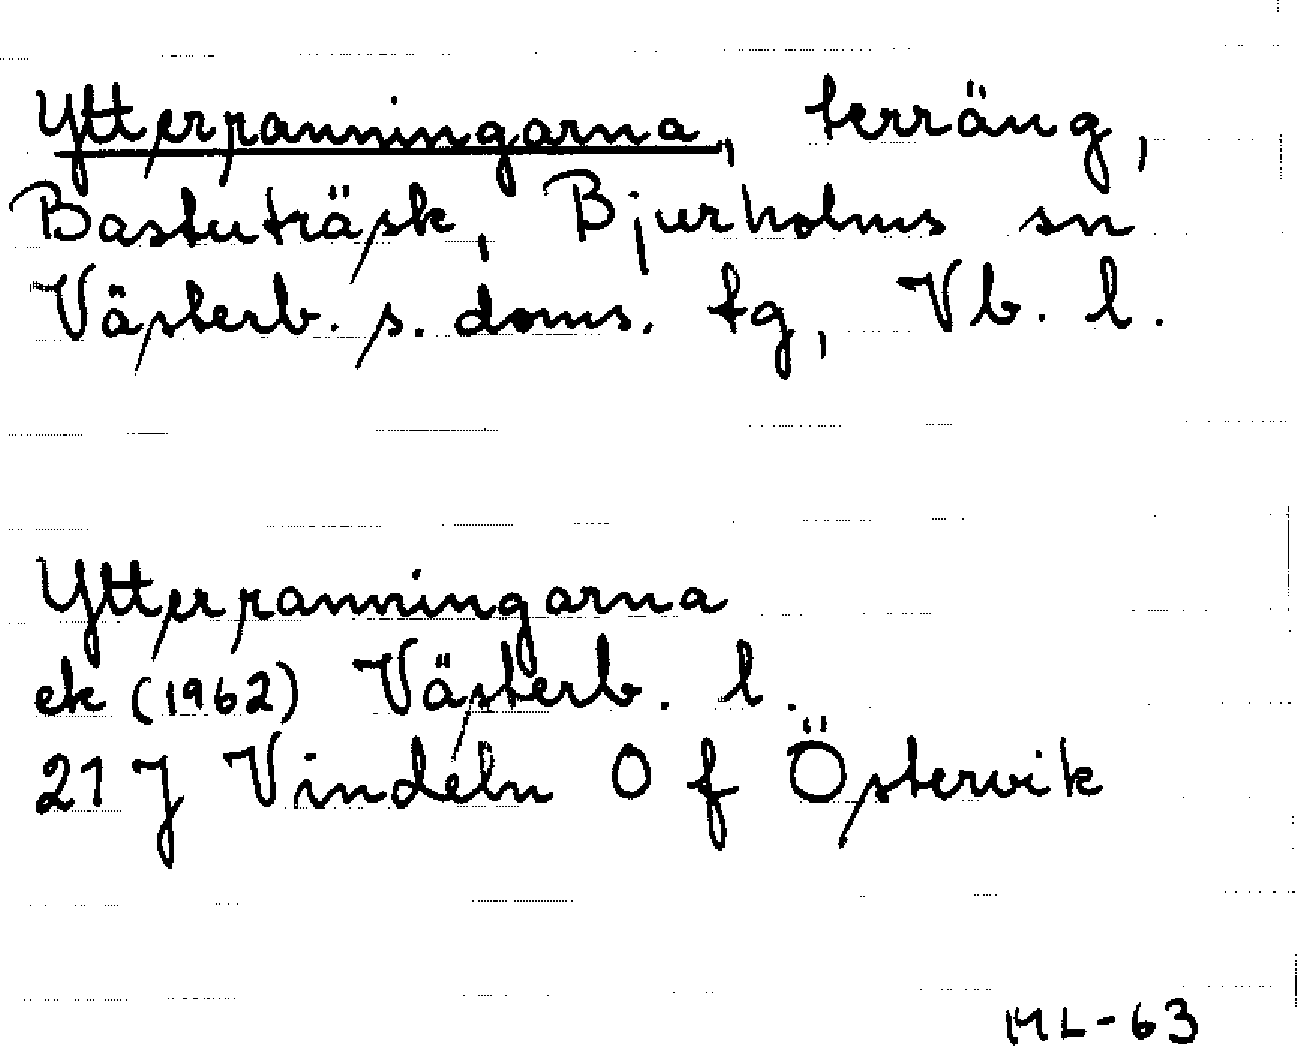 Ytterranningarna, terräng,
Bastuträsk, Bjurholms sn
Västerb. s. doms. tg, Vb. l.
Ytterranningarna
ek (1962) Västerb. l.
21 J Vindeln O f Östervik
ML-63